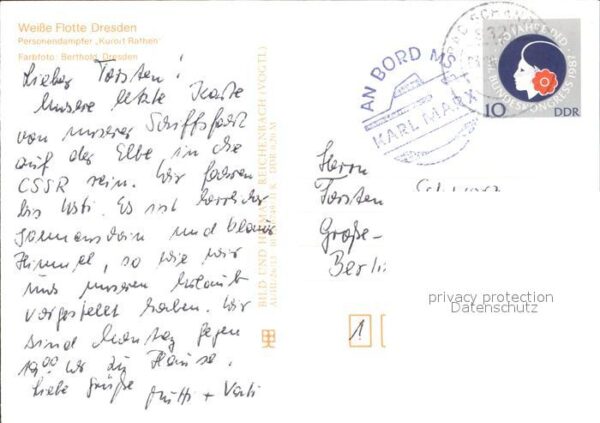 Weiße Flotte Dresden
Personendampfer „Kurort Rathen"
Farbfoto: Berthold, Dresden
Lieber Torsten!
Unsere letzte Karte
von unserer Schiffsfahrt
auf der Elbe in die
CSSR sein. Wir fahren
bis Usti. Es ist herrlicher
Sonnenschein und blauer
Himmel, so wie wir
uns unseren Urlaub
vorgestellt haben. Wir
sind Montag gegen
19.00 Uhr zu Hause.
Liebe Grüße Mutti + Vati
BILD UND HEIMAT REICHENBACH (VOGTL)
AN BORD MS
KARL MARX
BAD SCHANDAU
10
DDR
Herrn
Torsten
Große-
Berli
1
privacy protection
Datenschutz